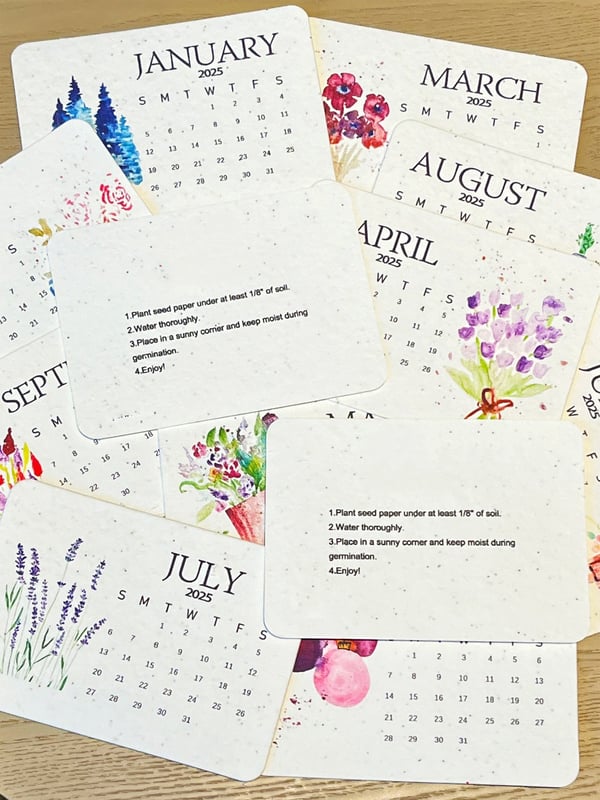 JANUARY
2025
S M T W T F S
1 2 3 4
5 6 7 8 9 10 11
12 13 14 15 16 17 18
19 20 21 22 23 24 25
26 27 28 29 30 31
MARCH
2025
S M T W T F S
1
AUGUST
2025
S M T W T F S
S
13 14
20 21
1.Plant seed paper under at least 1/8" of soil.
2.Water thoroughly.
3.Place in a sunny corner and keep moist during
germination.
4.Enjoy!
APRIL
2025
W T F S
2 3 4 5
10 11 12
17 18 19
25 26
2025
W
SEPT
S M
1
7 8
14 15 16 17 18
22 23 24
30
1.Plant seed paper under at least 1/8" of soil.
2.Water thoroughly.
3.Place in a sunny corner and keep moist during
germination.
4.Enjoy!
JULY
2025
S M T W T F S
1 2 3 4 5
6 7 8 9 10 11 12
13 14 15 16 17 18 19
20 21 22 23 24 25 26
27 28 29 30 31
1 2 3 4 5 6
7 8 9 10 11 12 13
14 15 16 17 18 19 20
21 22 23 24 25 26 27
28 29 30 31